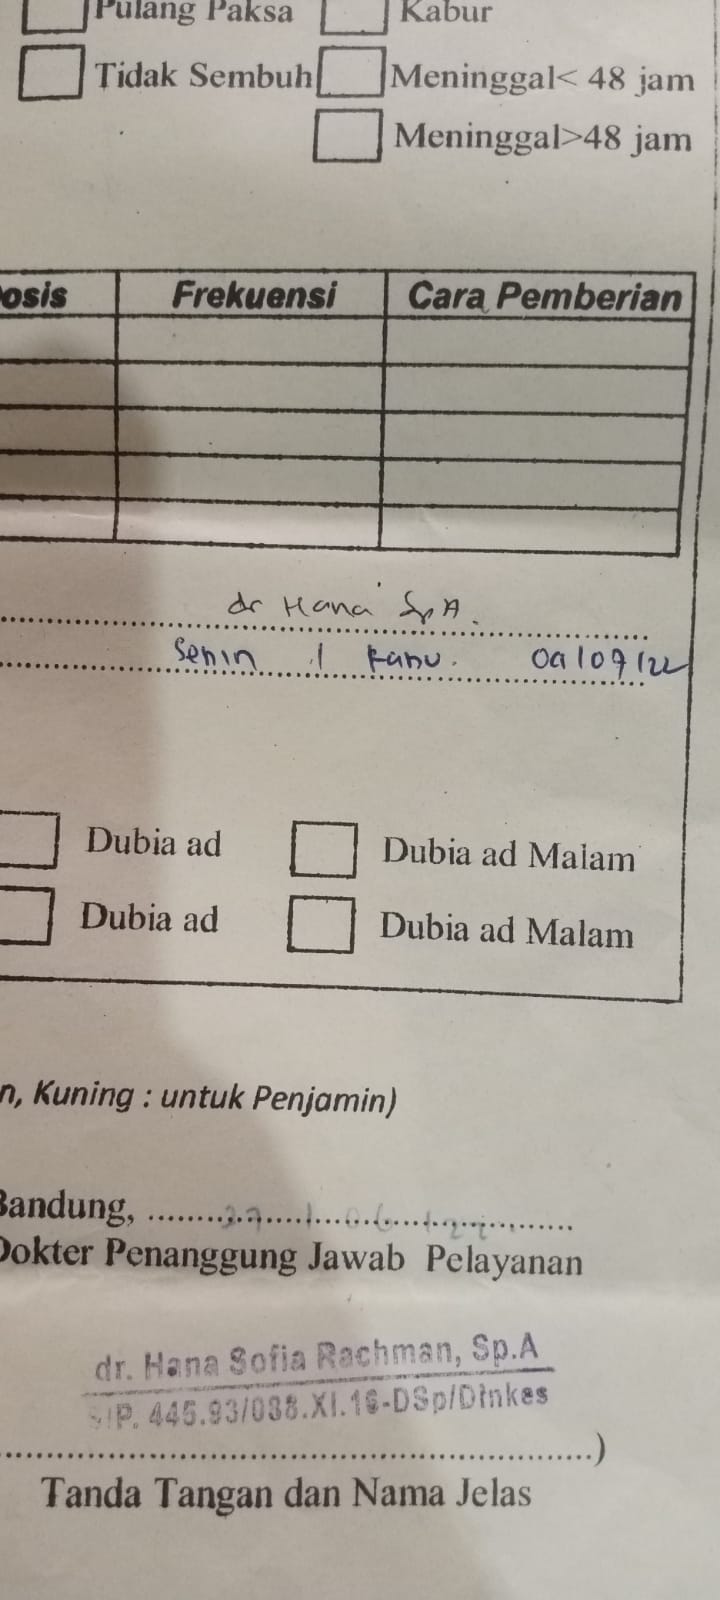 Pulang Paksa Kabur
Tidak Sembuh Meninggal< 48 jam
Meninggal>48 jam
osis Frekuensi Cara Pemberian
dr Hana SpA.
Senin / Rabu. 09/07/22
Dubia ad Dubia ad Malam
Dubia ad Dubia ad Malam
n, Kuning : untuk Penjamin)
Bandung, 27/06/22
Dokter Penanggung Jawab Pelayanan
dr. Hana Sofia Rachman, Sp.A
SIP. 445.93/038.XI.16-DSp/Dinkes
)
Tanda Tangan dan Nama Jelas